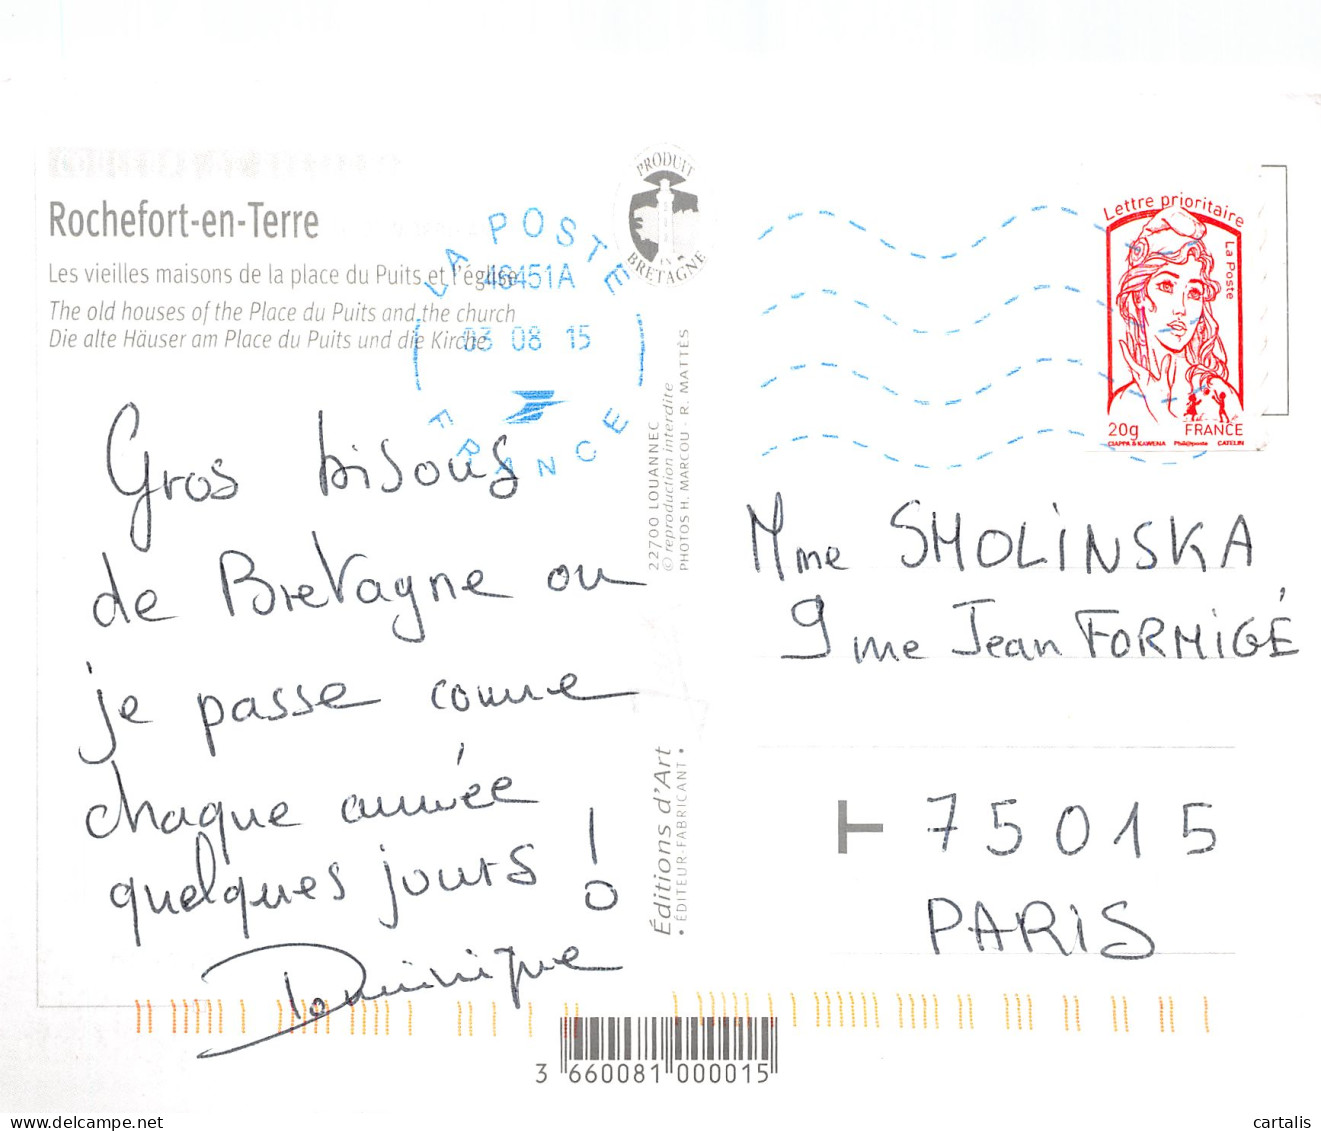 Rochefort-en-Terre
Les vieilles maisons de la place du Puits et l'église
The old houses of the Place du Puits and the church
Die alte Häuser am Place du Puits und die Kirche
PRODUIT
EN
BRETAGNE
LA POSTE
46451A
03 08 15
FRANCE
Lettre prioritaire
La Poste
20g FRANCE
CIAPPA & KAWENA Phil@poste CATELIN
Gros bisous
de Bretagne ou
je passe comme
chaque année
quelques jours !
Dominique
22700 LOUANNEC
© reproduction interdite
PHOTOS H. MARCOU - R. MATTÈS
Éditions d'Art
• ÉDITEUR-FABRICANT •
Mme SMOLINSKA
9 rue Jean FORMIGÉ
75015
PARIS
3 660081 000015
cartalis